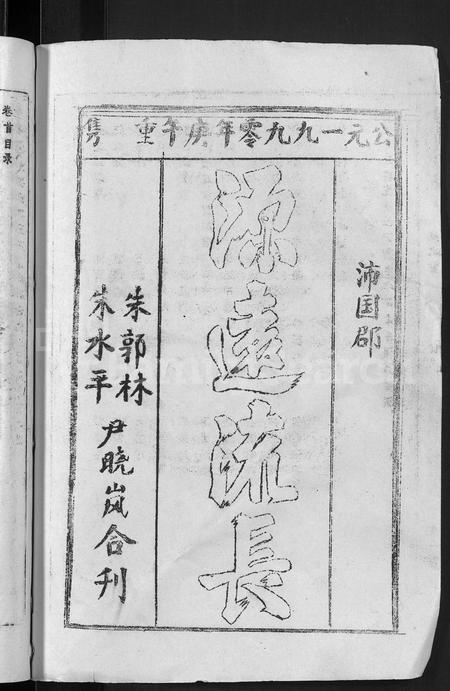 公元一九九零年庚午重 镌
沛国郡
源遠流長
朱郭林
朱水平
尹晓岚合刊
卷首目录